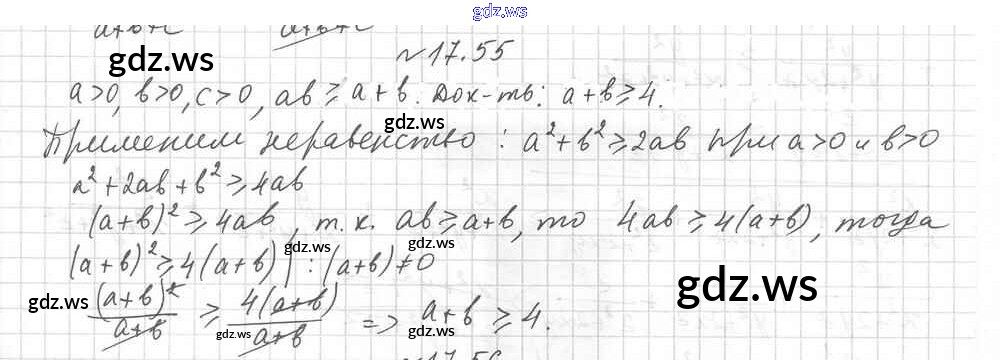 gdz.ws
a+b+c a+b+c
gdz.ws
№17.55
a>0, b>0, c>0, ab ≥ a+b. Док-ть: a+b≥4.
gdz.ws
Применим неравенство: a²+b²≥2ab при a>0 и b>0
a²+2ab+b²≥4ab
(a+b)²≥4ab, т.к. ab≥a+b, то 4ab≥4(a+b), тогда
gdz.ws gdz.ws
(a+b)²≥4(a+b) | :(a+b)≠0
gdz.ws gdz.ws
(a+b)²/a+b ≥ 4(a+b)/a+b => a+b≥4.
gdz.ws gdz.ws
№17.56